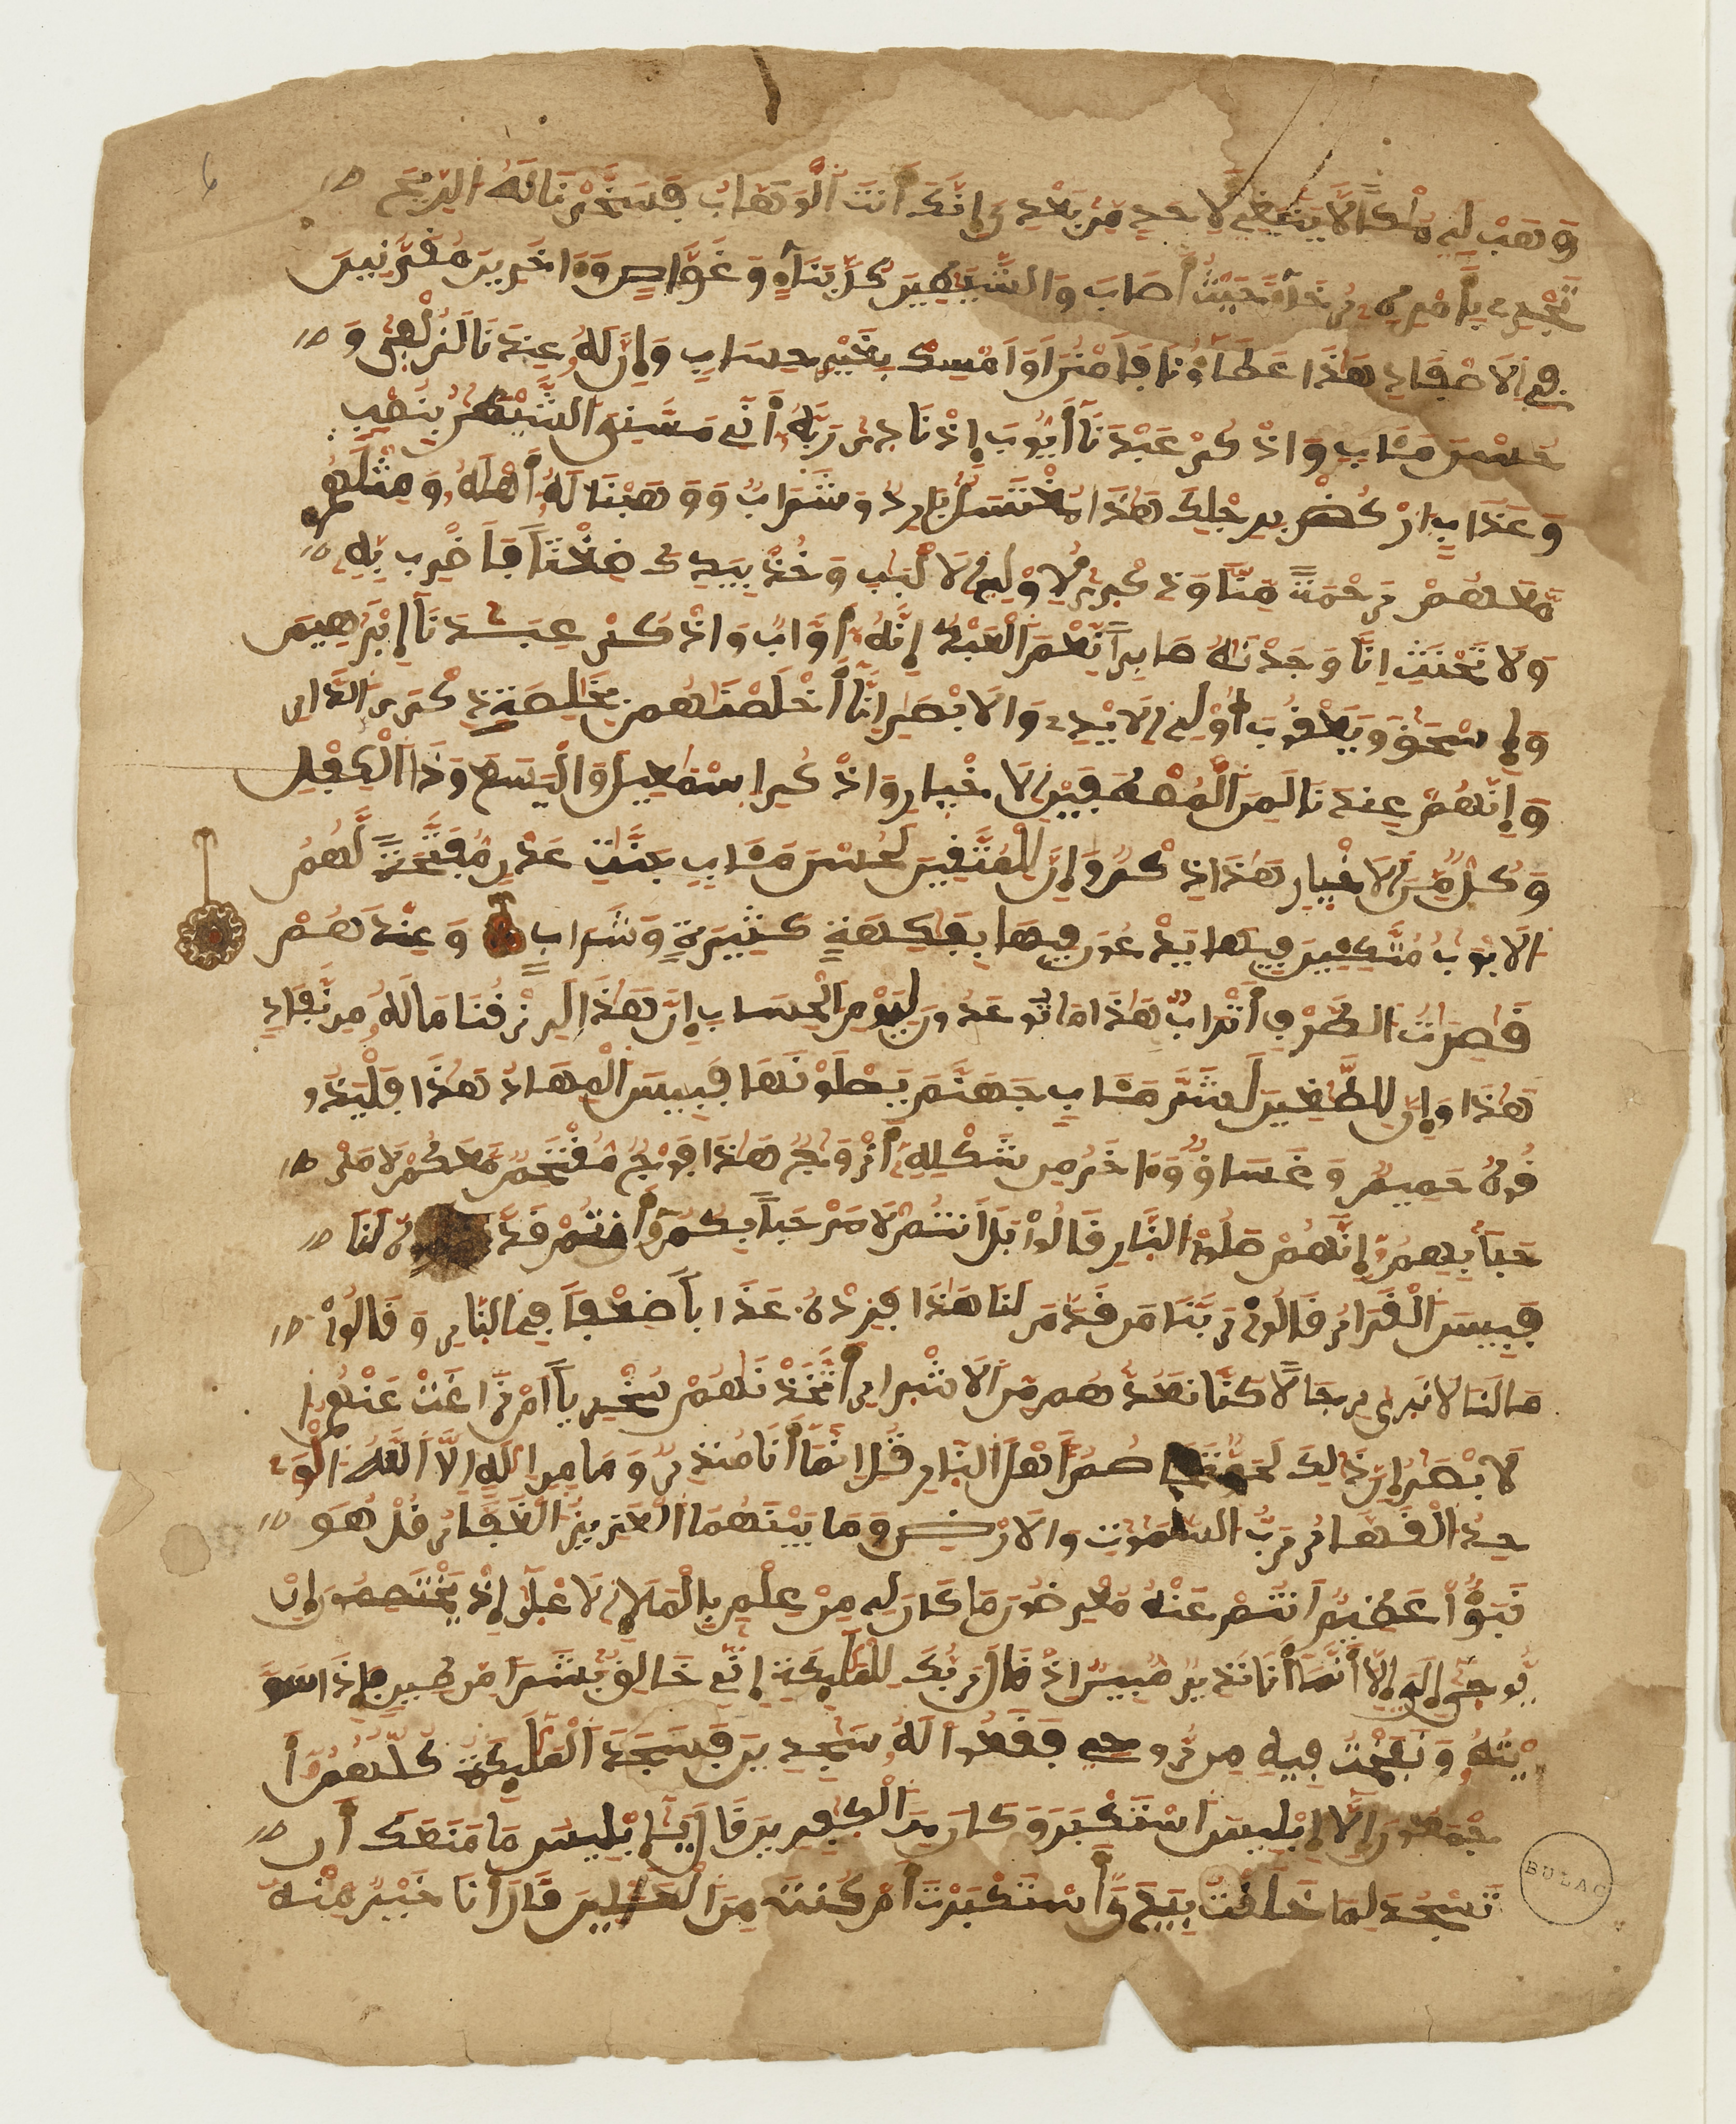 وَهَبْ لِي مُلْكاً لَّا يَنۢبَغِي لِأَحَدٍ مِّنۢ بَعْدِي إِنَّكَ أَنتَ اَلْوَهَّابُ فَسَخَّرْنَا لَهُ اُلرِّيحَ
تَجْرِي بِأَمْرِهِ رُخَآءً حَيْثُ أَصَابَ وَالشَّيَٰطِينَ كُلَّ بَنَّآءٍ وَغَوَّاصٍ وَءَاخَرِينَ مُقَرَّنِينَ
فِي اِلَاصْفَادِ هَٰذَا عَطَآؤُنَا فَامْنُنَ اَوَ اَمْسِكْ بِغَيْرِ حِسَابٍ وَإِنَّ لَهُ عِندَنَا لَزُلْفَىٰ وَ
حُسْنَ مَـَٔابٍ وَاذْكُرْ عَبْدَنَآ أَيُّوبَ إِذْ نَادَىٰ رَبَّهُ أَنِّي مَسَّنِيَ اَلشَّيْطَٰنُ بِنُصْبٍ
وَعَذَابٍ اُرْكُضْ بِرِجْلِكَ هَٰذَا مُغْتَسَلٌ بَارِدٌ وَشَرَابٌ وَوَهَبْنَا لَهُ أَهْلَهُ وَمِثْلَهُم
مَّعَهُمْ رَحْمَةً مِّنَّا وَذِكْرَىٰ لِأُوْلِي اِلَالْبَٰبِ وَخُذْ بِيَدِكَ ضِغْثاً فَاضْرِب بِّهِ
وَلَا تَحْنَثِ اِنَّا وَجَدْنَٰهُ صَابِراً نِّعْمَ اَلْعَبْدُ إِنَّهُ أَوَّابٌ وَاذْكُرْ عِبَٰدَنَآ إِبْرَٰهِيمَ
وَإِسْحَٰقَ وَيَعْقُوبَ أُوْلِي اِلَايْدِي وَالَابْصَٰرِ إِنَّآ أَخْلَصْنَٰهُم بِخَالِصَةِ ذِكْرَى اَلدَّارِ
وَإِنَّهُمْ عِندَنَا لَمِنَ اَلْمُصْطَفَيْنَ اَلَاخْيَارِ وَاذْكُرِ اِسْمَٰعِيلَ وَالْيَسَعَ وَذَا اَلْكِفْلِ
وَكُلٌّ مِّنَ اَلَاخْيَارِ هَٰذَا ذِكْرٌ وَإِنَّ لِلْمُتَّقِينَ لَحُسْنَ مَـَٔابٍ جَنَّٰتِ عَدْنٍ مُّفَتَّحَةً لَّهُمُ
اُلَابْوَٰبُ مُتَّكِـِٔينَ فِيهَا يَدْعُونَ فِيهَا بِفَٰكِهَةٍ كَثِيرَةٍ وَشَرَابٍ وَعِندَهُمْ
قَٰصِرَٰتُ اُلطَّرْفِ أَتْرَابٌ هَٰذَا مَا تُوعَدُونَ لِيَوْمِ اِلْحِسَابِ إِنَّ هَٰذَا لَرِزْقُنَا مَا لَهُ مِن نَّفَادٍ
هَٰذَا وَإِنَّ لِلطَّٰغِينَ لَشَرَّ مَـَٔابٍ جَهَنَّمَ يَصْلَوْنَهَا فَبِيسَ اَلْمِهَادُ هَٰذَا فَلْيَذُو
قُوهُ حَمِيمٌ وَغَسَاقٌ وَءَاخَرُ مِن شَكْلِهِ أَزْوَٰجٌ هَٰذَا فَوْجٌ مُّقْتَحِمٌ مَّعَكُمْ لَا مَرْ
حَباً بِهِمُ إِنَّهُمْ صَالُواْ اُلنَّارِ قَالُواْ بَلَ اَنتُمْ لَا مَرْحَباً بِكُمُ أَنتُمْ قَدَّمْتُمُوهُ لَنَا
فَبِيسَ اَلْقَرَارُ قَالُواْ رَبَّنَا مَن قَدَّمَ لَنَا هَٰذَا فَزِدْهُ عَذَاباً ضِعْفاً فِي اِلنَّارِ وَقَالُواْ
مَا لَنَا لَا نَرَىٰ رِجَالاً كُنَّا نَعُدُّهُم مِّنَ اَلَاشْرَارِ أَتَّخَذْنَٰهُمْ سُخْرِيّاً اَمْ زَاغَتْ عَنْهُمُ
اُلَابْصَٰرُ إِنَّ ذَٰلِكَ لَحَقٌّ تَخَاصُمُ أَهْلِ اِلنَّارِ قُلِ اِنَّمَآ أَنَا مُنذِرٌ وَمَا مِنِ اِلَٰهٍ اِلَّا اَللَّهُ اُلْوَٰ
حِدُ اُلْقَهَّارُ رَبُّ السَّمَٰوَٰتِ وَالَارْضِ وَمَا بَيْنَهُمَا اَلْعَزِيزُ اُلْغَفَّٰرُ قُلْ هُوَ
نَبَؤٌاْ عَظِيمٌ اَنتُمْ عَنْهُ مُعْرِضُونَ مَا كَانَ لِي مِنْ عِلْمٍ بِالْمَلَإِ اِلَاعْلَىٰ إِذْ يَخْتَصِمُونَ إِنْ
يُّوحَىٰ إِلَيَّ إِلَّآ أَنَّمَآ أَنَا نَذِيرٌ مُّبِينٌ اِذْ قَالَ رَبُّكَ لِلْمَلَٰٓئِكَةِ إِنِّي خَٰلِقٌ بَشَراً مِّن طِينٍ فَإِذَا سَوَّ
يْتُهُ وَنَفَخْتُ فِيهِ مِن رُّوحِي فَقَعُواْ لَهُ سَٰجِدِينَ فَسَجَدَ اَلْمَلَٰٓئِكَةُ كُلُّهُمُ أَ
جْمَعُونَ إِلَّآ إِبْلِيسَ اَسْتَكْبَرَ وَكَانَ مِنَ اَلْكَٰفِرِينَ قَالَ يَٰٓإِبْلِيسُ مَا مَنَعَكَ أَن
تَسْجُدَ لِمَا خَلَقْتُ بِيَدَيَّ أَسْتَكْبَرْتَ أَمْ كُنتَ مِنَ اَلْعَالِينَ قَالَ أَنَا خَيْرٌ مِّنْهُ
BULAC